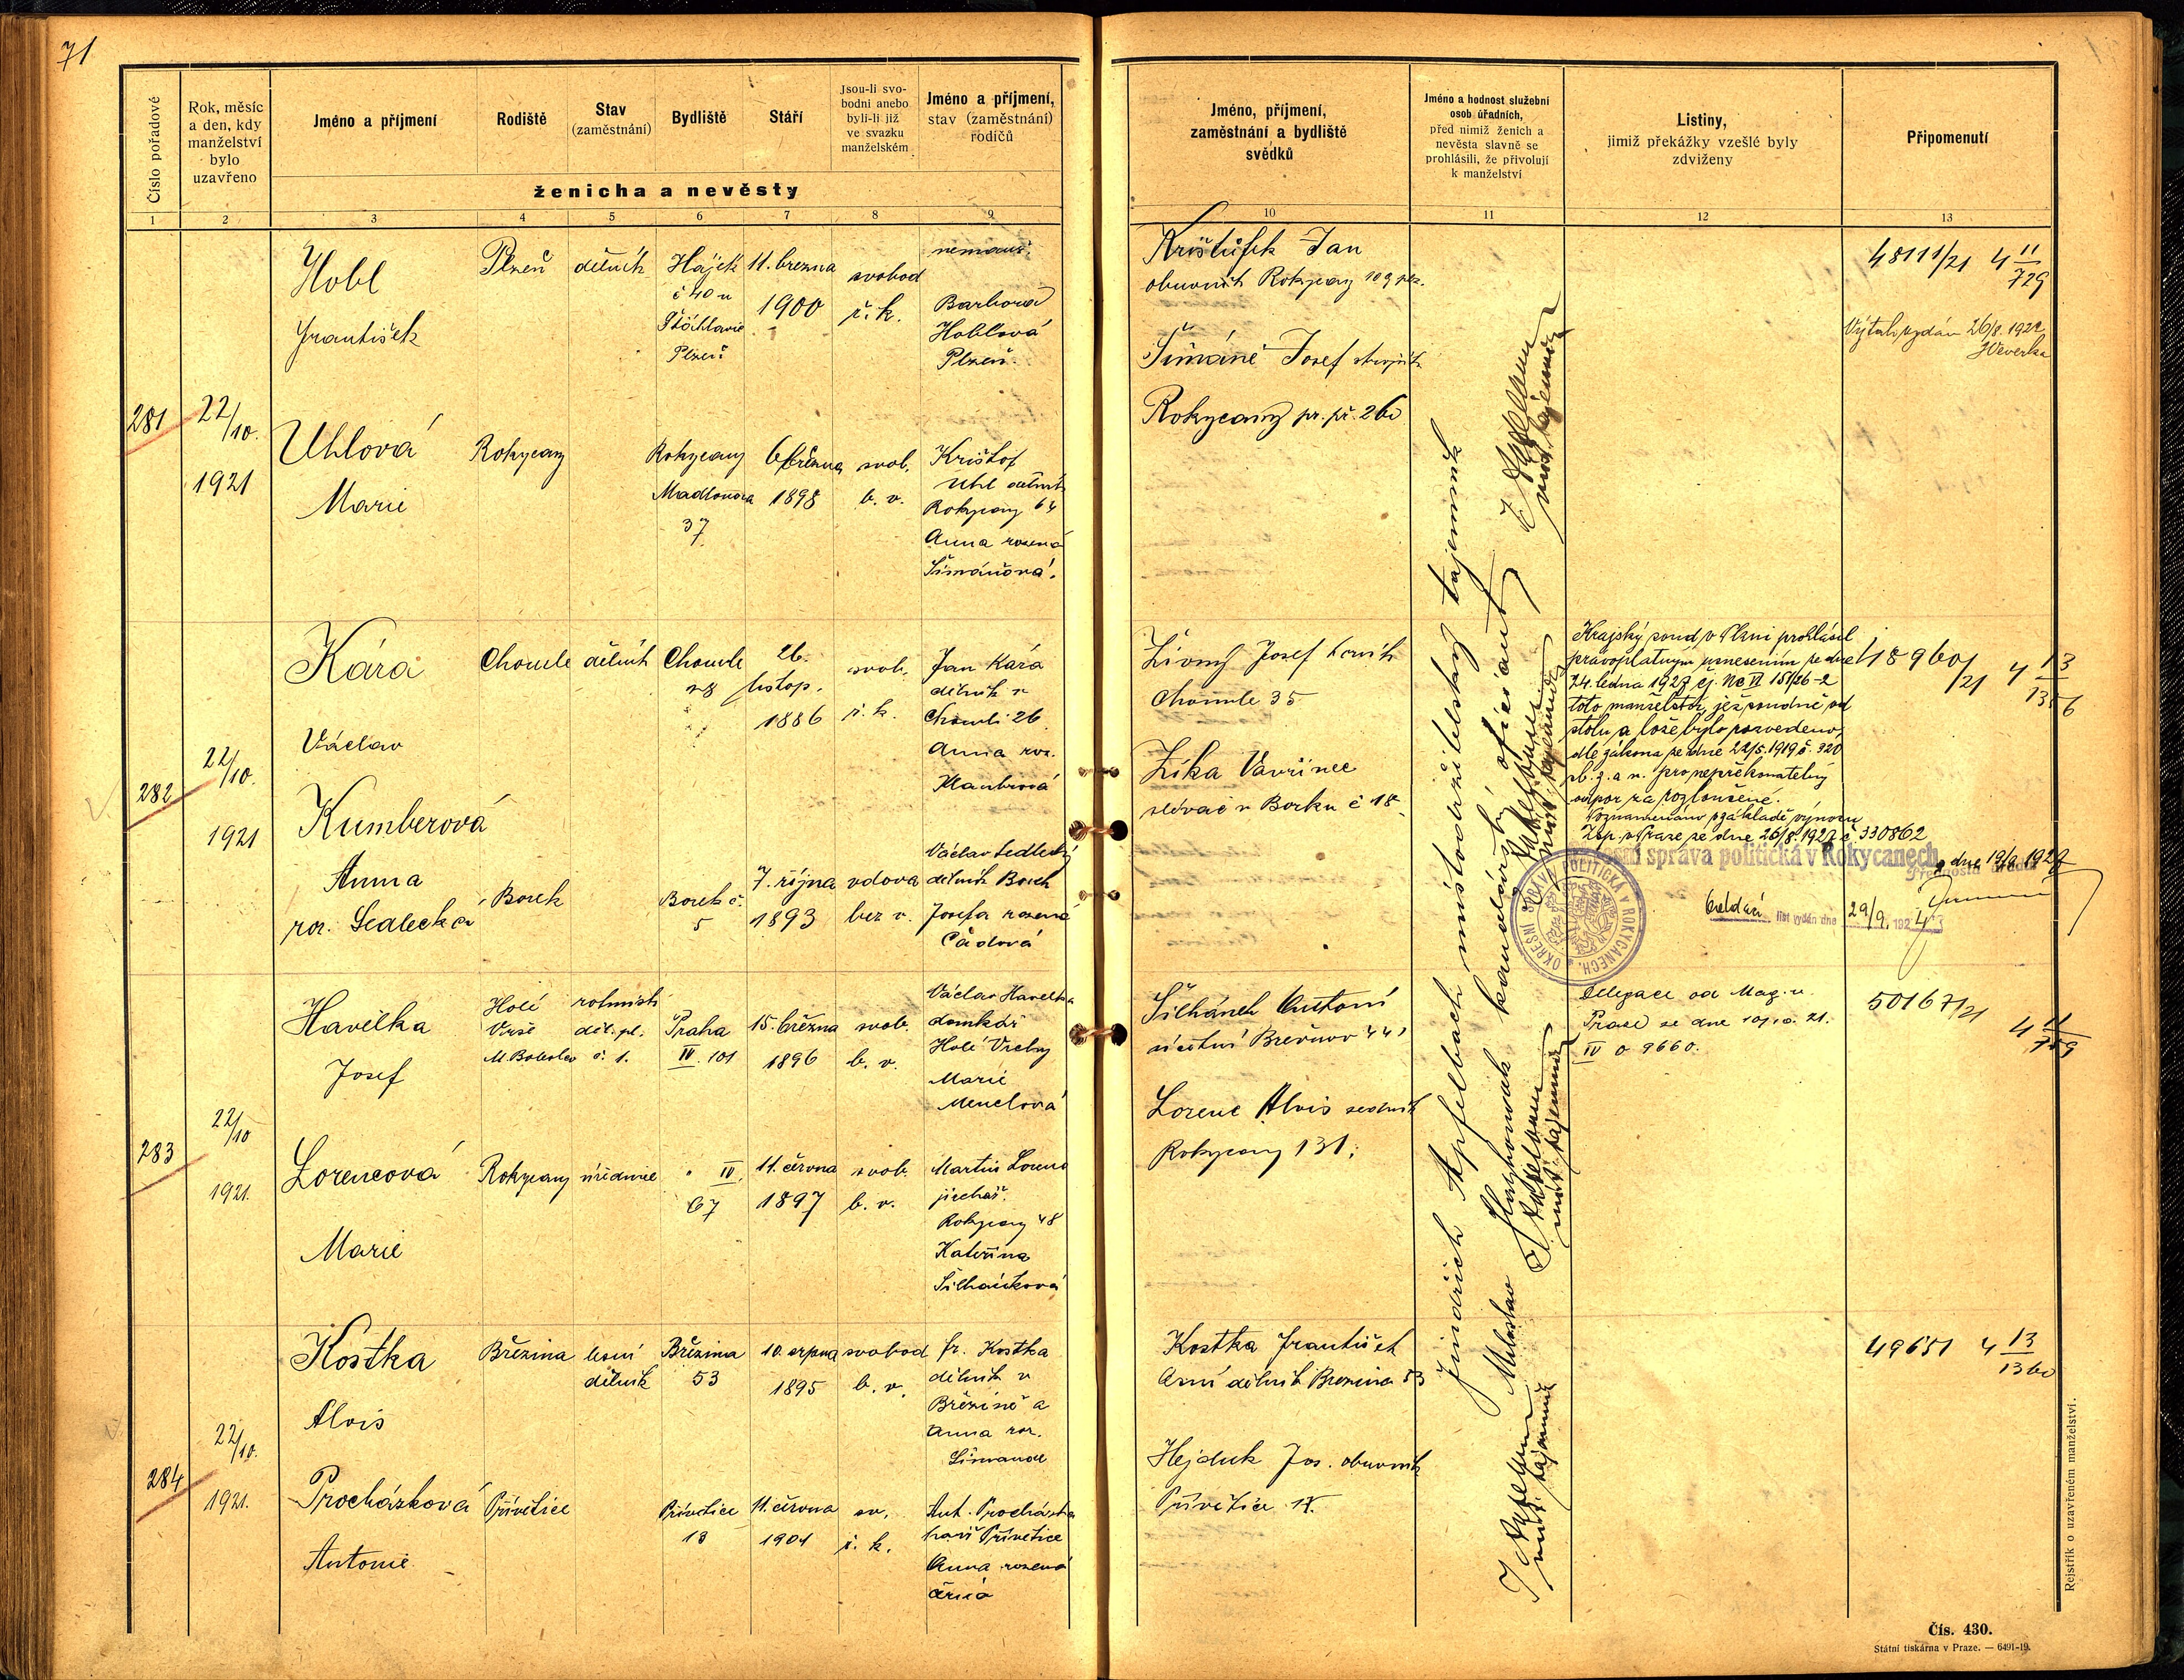 71
Číslo pořadové
Rok, měsíc
a den, kdy
manželství
bylo
uzavřeno
Jméno a příjmení
Rodiště
Stav
(zaměstnání)
Bydliště
Stáří
Jsou-li svo-
bodni anebo
byli-li již
ve svazku
manželském
Jméno a příjmení,
stav (zaměstnání)
rodičů
ženicha a nevěsty
1 2 3 4 5 6 7 8 9
Jméno, příjmení,
zaměstnání a bydliště
svědků
Jméno a hodnost služební
osob úřadních,
před nimiž ženich a
nevěsta slavně se
prohlásili, že přivolují
k manželství
Listiny,
jimiž překážky vzešlé byly
zdviženy
Připomenutí
10 11 12 13
281
22/10.
1921
Hobl
František
Plzeň
dělník
Hájek
č 40 u
Plzeň
11. března
1900
svobod
ř. k.
Barbora
Hoblová
Plzeň.
Uhlová
Marie
Rokycany
Rokycany
37
6 března
1898
svob.
b. v.
Krištof
Uhl dělník
Rokycany 64
Anna rozená
Šimánová.
Krištůfek Jan
obuvník Rokycany 109
Josef
Rokycany pr. př. 260
48111/21 4 11/729
Výtah vydán 26/8. 1922
JVeverka
282
22/10.
1921
Kára
Václav
Chomle
dělník
Chomle
28
26.
listop.
1886
svob.
ř. k.
Jan Kára
dělník v
Chomli 26
Anna roz.
Kumberová
Anna
roz. Sedlecká
Borek
Borek č.
5
7. října
1893
vdova
bez v.
Václav Sedlecký
dělník Borek
Josefa rozená
Čádová
Živný Josef
Chomle 35
Zíka Vavřinec
slévač v Borku č 18
Krajský soud v Plzni prohlásil
právoplatným usnesením ze dne
24. ledna 1927 čj. Nc VI 151/26-2
toto manželství, jež soudně od
stolu a lože bylo rozvedeno,
dle zákona ze dne 22/5. 1919 č. 320
sb. z. a n. pro nepřekonatelný
odpor za rozloučené.
Poznamenáno na základě výnosu
Zsp. v Praze ze dne 26/8. 1927 č 330862
správa politická v Rokycanech, dne 19/9 1927
Přednosta úřadu
OKRESNÍ SPRÁVA POLITICKÁ V ROKYCANECH
Oddací list vydán dne 29/9. 192
48960/21 4 13/1356
283
22/10
1921.
Havelka
Josef
Holé
Vrše
M Boleslav
rotmistr
děl. pl.
č. 1.
Praha
IV. 101
15. března
1896
svob.
b. v.
Václav Havelka
domkář
Holé Vrchy
Marie
Menclová
Lorencová
Marie
Rokycany
úřednice
" IV.
67
11. června
1897
svob.
b. v.
Martin Lorenc
jirchář.
Rokycany 48
Kateřina
Šilhánková
Šilhánek Antonín
účetní Břevnov 441
Lorenc Alois
Rokycany 131.
Delegace od Mag. v
Praze ze dne 10/10. 21.
IV o 9660.
50167/21
284
22/10.
1921.
Kostka
Alois
Březina
lesní
dělník
Březina
53
10. srpna
1895
svobod
b. v.
fr. Kostka
dělník v
Březině a
Anna roz.
Procházková
Antonie
Přívětice
Přívětice
18
11. června
1901
sv.
ř. k.
Ant. Procházka
Přívětice
Anna rozená
Černá
Kostka František
lesní dělník Březina 53
Hejduk Jos. obuvník
Přívětice
49651 4 13/1360
Jindřich Apfelbach místodržitelský tajemník
Miloslav kancelářský oficiant
Rejstřík o uzavřeném manželství.
Čís. 430.
Státní tiskárna v Praze. — 6491-19.